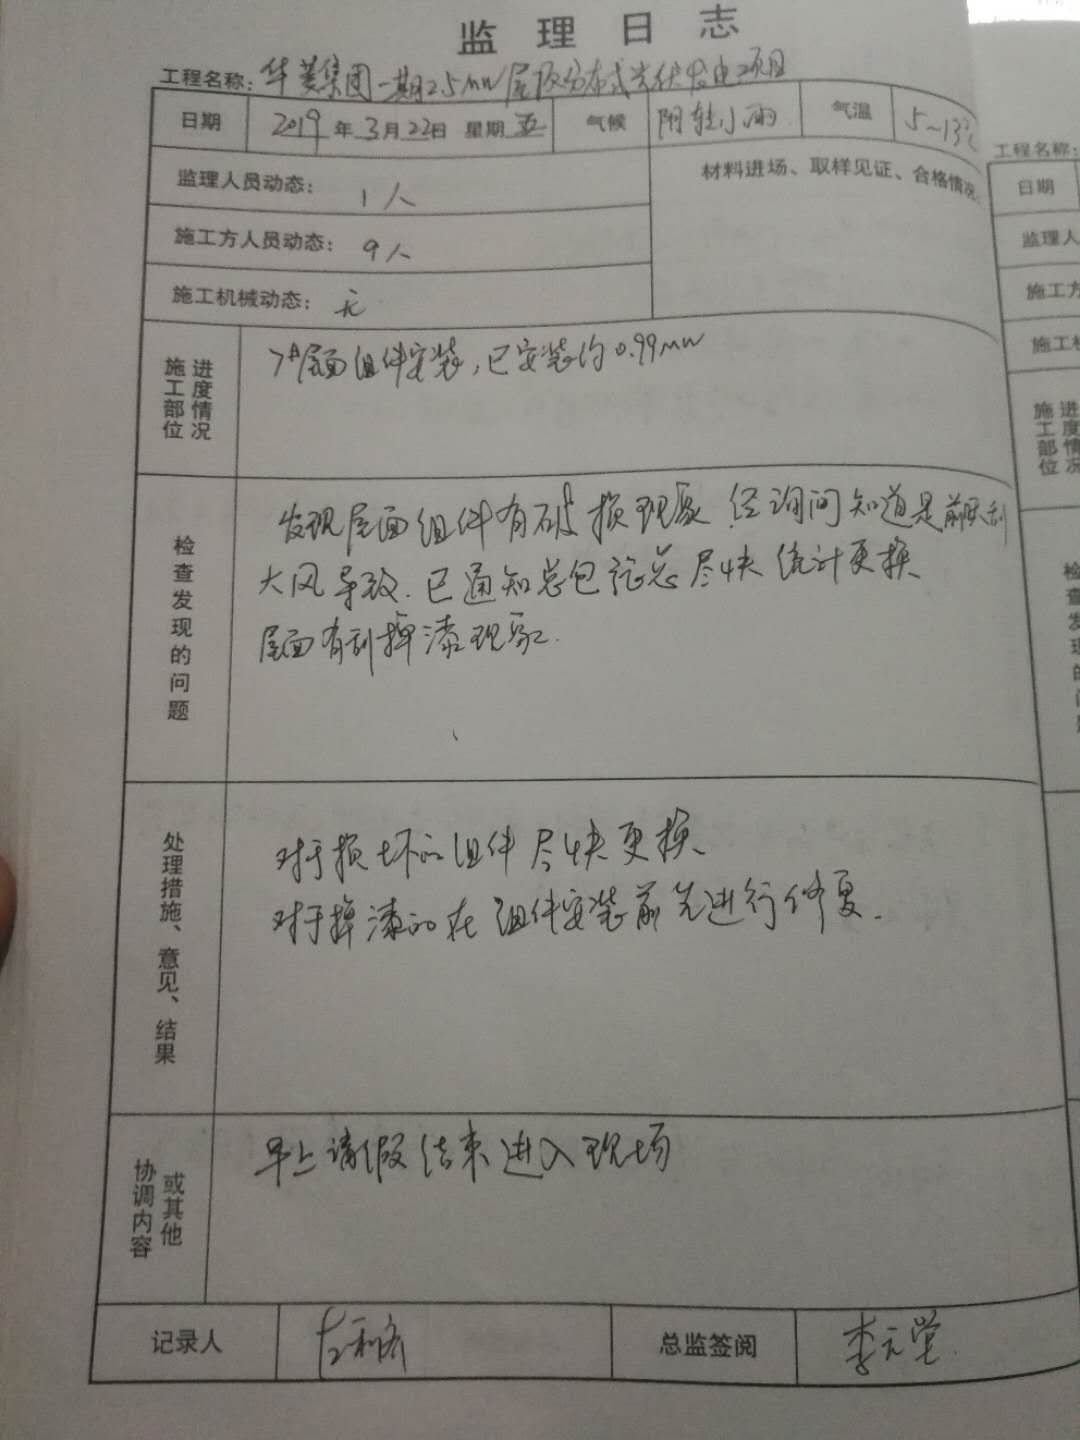 监理日志
工程名称：华菱集团一期25MW屋顶分布式光伏发电项目
日期 2019年3月22日 星期五 气候 阴转小雨 气温 5~13℃
监理人员动态： 1人
材料进场、取样见证、合格情况
施工方人员动态： 9人
施工机械动态： 无
施工部位进度情况
7#屋面组件安装，已安装约0.99MW
检查发现的问题
发现屋面组件有破损现象 经询问知道是前天刮
大风导致.已通知总包 尽快统计更换
屋面有刮掉漆现象.
处理措施、意见、结果
对于损坏的组件尽快更换
对于掉漆的在组件安装前先进行修复.
协调内容或其他
早上请假结束进入现场
记录人
总监签阅 李元堂
工程名称：
日期
监理人
施工方
施工机
施工部位进度情况